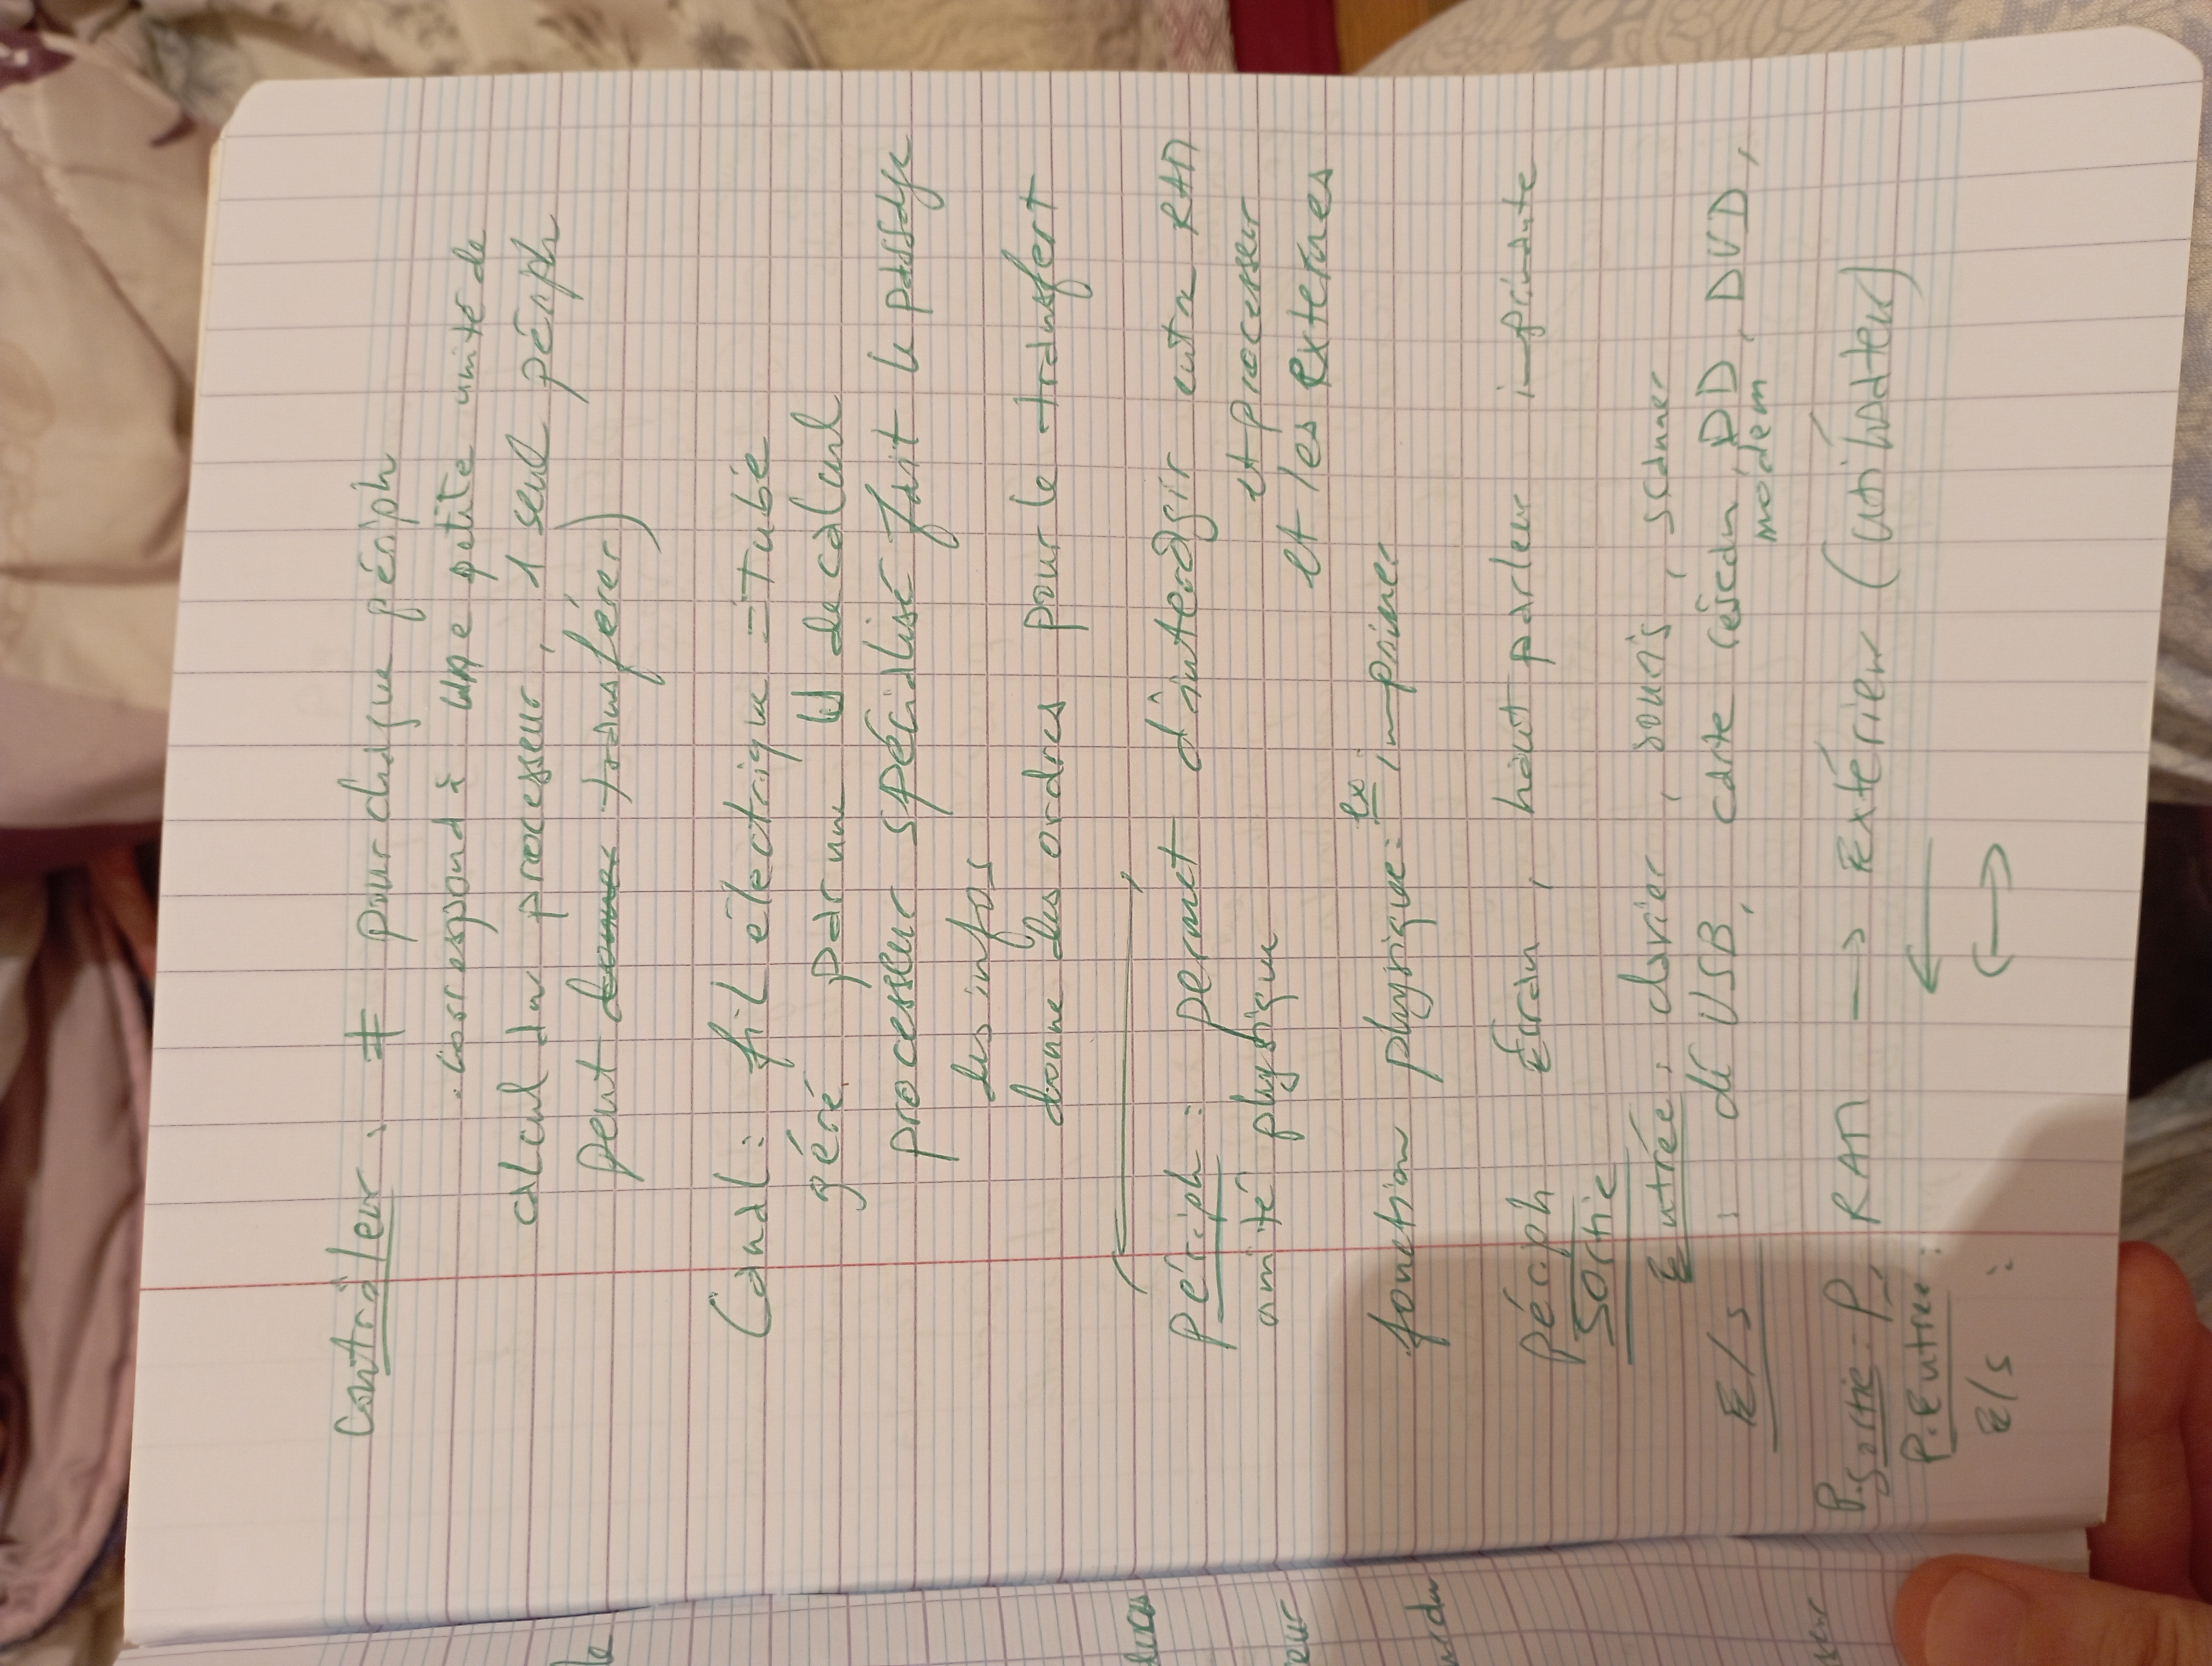 Contrôleur : ≠ pour chaque périph
. correspond à une petite unité de
calcul du processeur, 1 seul périph
peut donner transférer)
Canal : fil électrique = tube
géré par une U de calcul
processeur spécialisé fait le passage
des infos
donne des ordres pour le transfert
périph : permet d'interagir entre RAM
unité physique et processeur
et les externes
fonction physique : ex imprimer
périph Écran, haut parleur imprimante
Sortie
Entrée : clavier, souris, scanner
E/S : clé USB, carte réseau, DD, DVD,
modem
P. Sortie : P, RAM → Extérieur (utilisateur)
P. Entrée : ←
E/S : ↔
le
eur